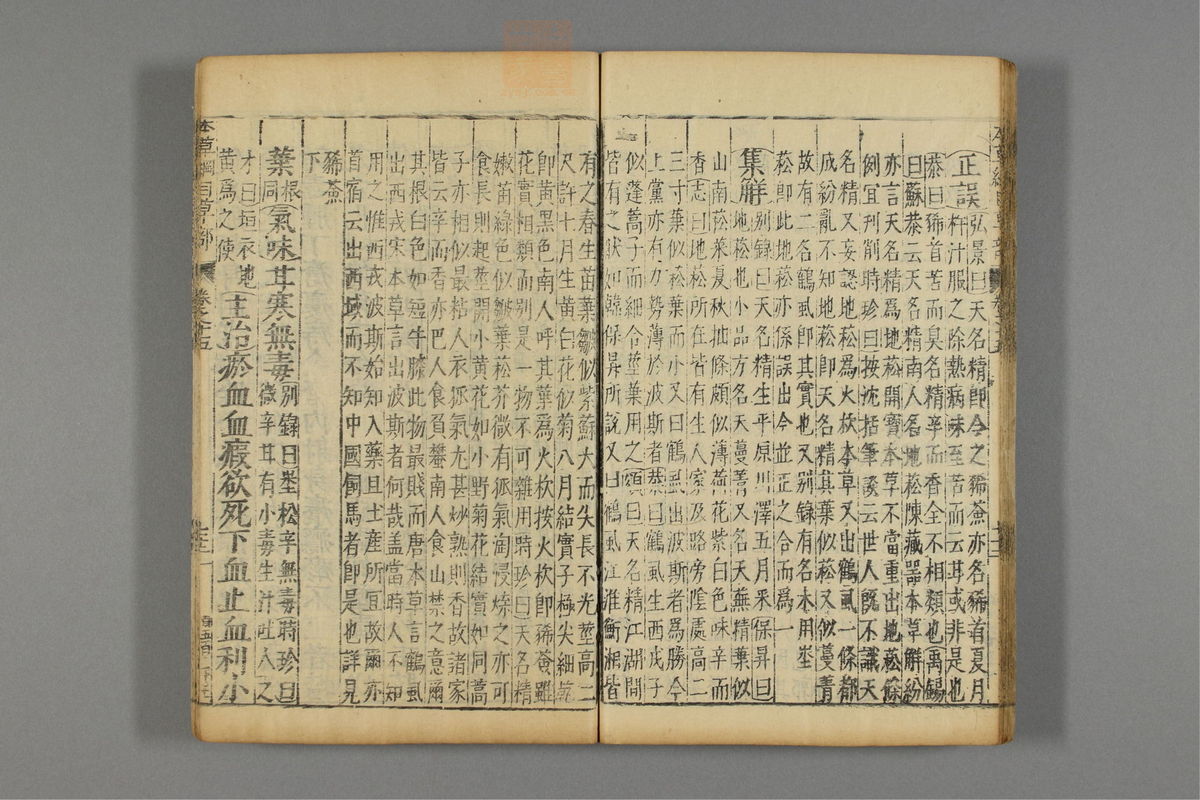 正誤弘景曰天名精即今之豨薟亦名豨首夏月
杵汁服之除熱病味至苦而云甘或非是也
恭曰豨首苦而臭名精辛而香全不相類也禹錫
曰蘇恭云天名精南人名地菘陳藏器本草解紛
亦言天名精爲地菘開寶本草不當重出地菘條
例宜刊削時珍曰按沈括筆談云世人既不識天
名精又妄認地菘爲火杴本草又出鶴虱一條都
成紛亂不知地菘即天名精其葉似菘又似蔓菁
故有二名鶴虱即其實也又别録有名未用埊
菘即此地菘亦係誤出今並正之合而爲一
集解别錄曰天名精生平原川澤五月采保昇曰
地菘也小品方名天蔓菁又名天蕪精葉似
山南菘菜夏秋抽條頗似薄荷花紫白色味辛而
香志曰地菘所在皆有生人家及路旁陰處高二
三寸葉似菘葉而小又曰鶴虱出波斯者爲勝今
上黨亦有力勢薄於波斯者恭曰鶴虱生西戎子
似蓬蒿子而細合莖葉用之頌曰天名精江湖間
皆有之狀如韓保昇所說又曰鶴虱江淮衡湘皆
有之春生苗葉皺似紫蘇大而尖長不光莖高二
尺許七月生黄白花似菊八月結實子極尖細乾
即黄黑色南人呼其葉爲火杴按火杴即豨薟雖
花實相類而别是一物不可雜用時珍曰天名精
嫩苗綠色似皺葉菘芥微有狐氣淘浸煠之亦可
食長則起莖開小黄花如小野菊花結實如同蒿
子亦相似最粘人衣狐氣尤甚炒熟則香故諸家
皆云辛而香亦巴人食負蠜南人食山禁之意爾
其根白色如短牛膝此物最賤而唐本草言鶴虱
出西戎宋本草言出波斯者何哉蓋當時人不知
用之惟西戎波斯始知入藥且土産所宜故爾亦
苜宿云出西域而不知中國飼馬者即是也詳見
豨薟
下
葉根同氣味甘寒無毒别錄曰埊松辛無毒時珍曰
微辛甘有小毒生汁吐人之
才曰垣衣地
黄爲之使主治瘀血血瘕欲死下血止血利小